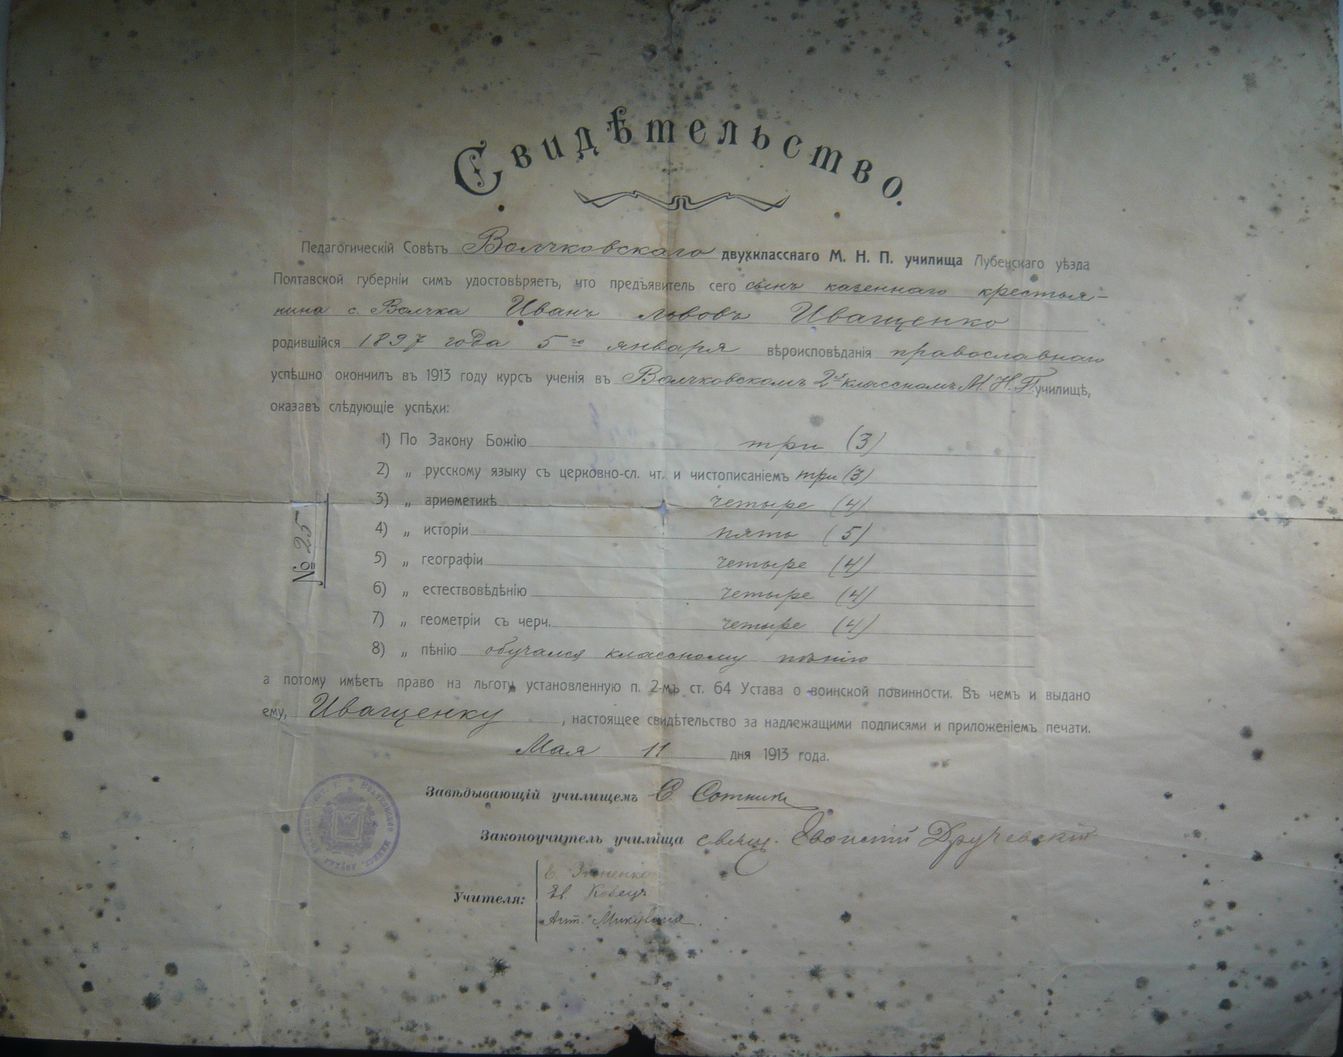 Свидѣтельство.
Педагогическій Совѣтъ Волчковскаго двухкласснаго М. Н. П. училища Лубенскаго уѣзда
Полтавской губерніи симъ удостовѣряетъ, что предъявитель сего сынъ казеннаго крестья-
нина с. Волчка Иванъ Львовъ Иващенко
родившійся 1897 года 5го января вѣроисповѣданія православнаго
успѣшно окончилъ въ 1913 году курсъ ученія въ Волчковскомъ 2х классномъ М. Н. П. училищѣ,
оказавъ слѣдующіе успѣхи:
1) По Закону Божію три (3)
2) „ русскому языку съ церковно-сл. чт. и чистописаніемъ три (3)
3) „ ариѳметикѣ четыре (4)
4) „ исторіи пять (5)
5) „ географіи четыре (4)
6) „ естествовѣдѣнію четыре (4)
7) „ геометріи съ черч. четыре (4)
8) „ пѣнію обучался классному пѣнію
№ 25
а потому имѣетъ право на льготу установленную п. 2-мъ ст. 64 Устава о воинской повинности. Въ чемъ и выдано
ему, Иващенку, настоящее свидѣтельство за надлежащими подписями и приложеніемъ печати.
Мая 11 дня 1913 года.
Завѣдывающій училищемъ Сотникъ
Законоучитель училища свящ.
Учителя: